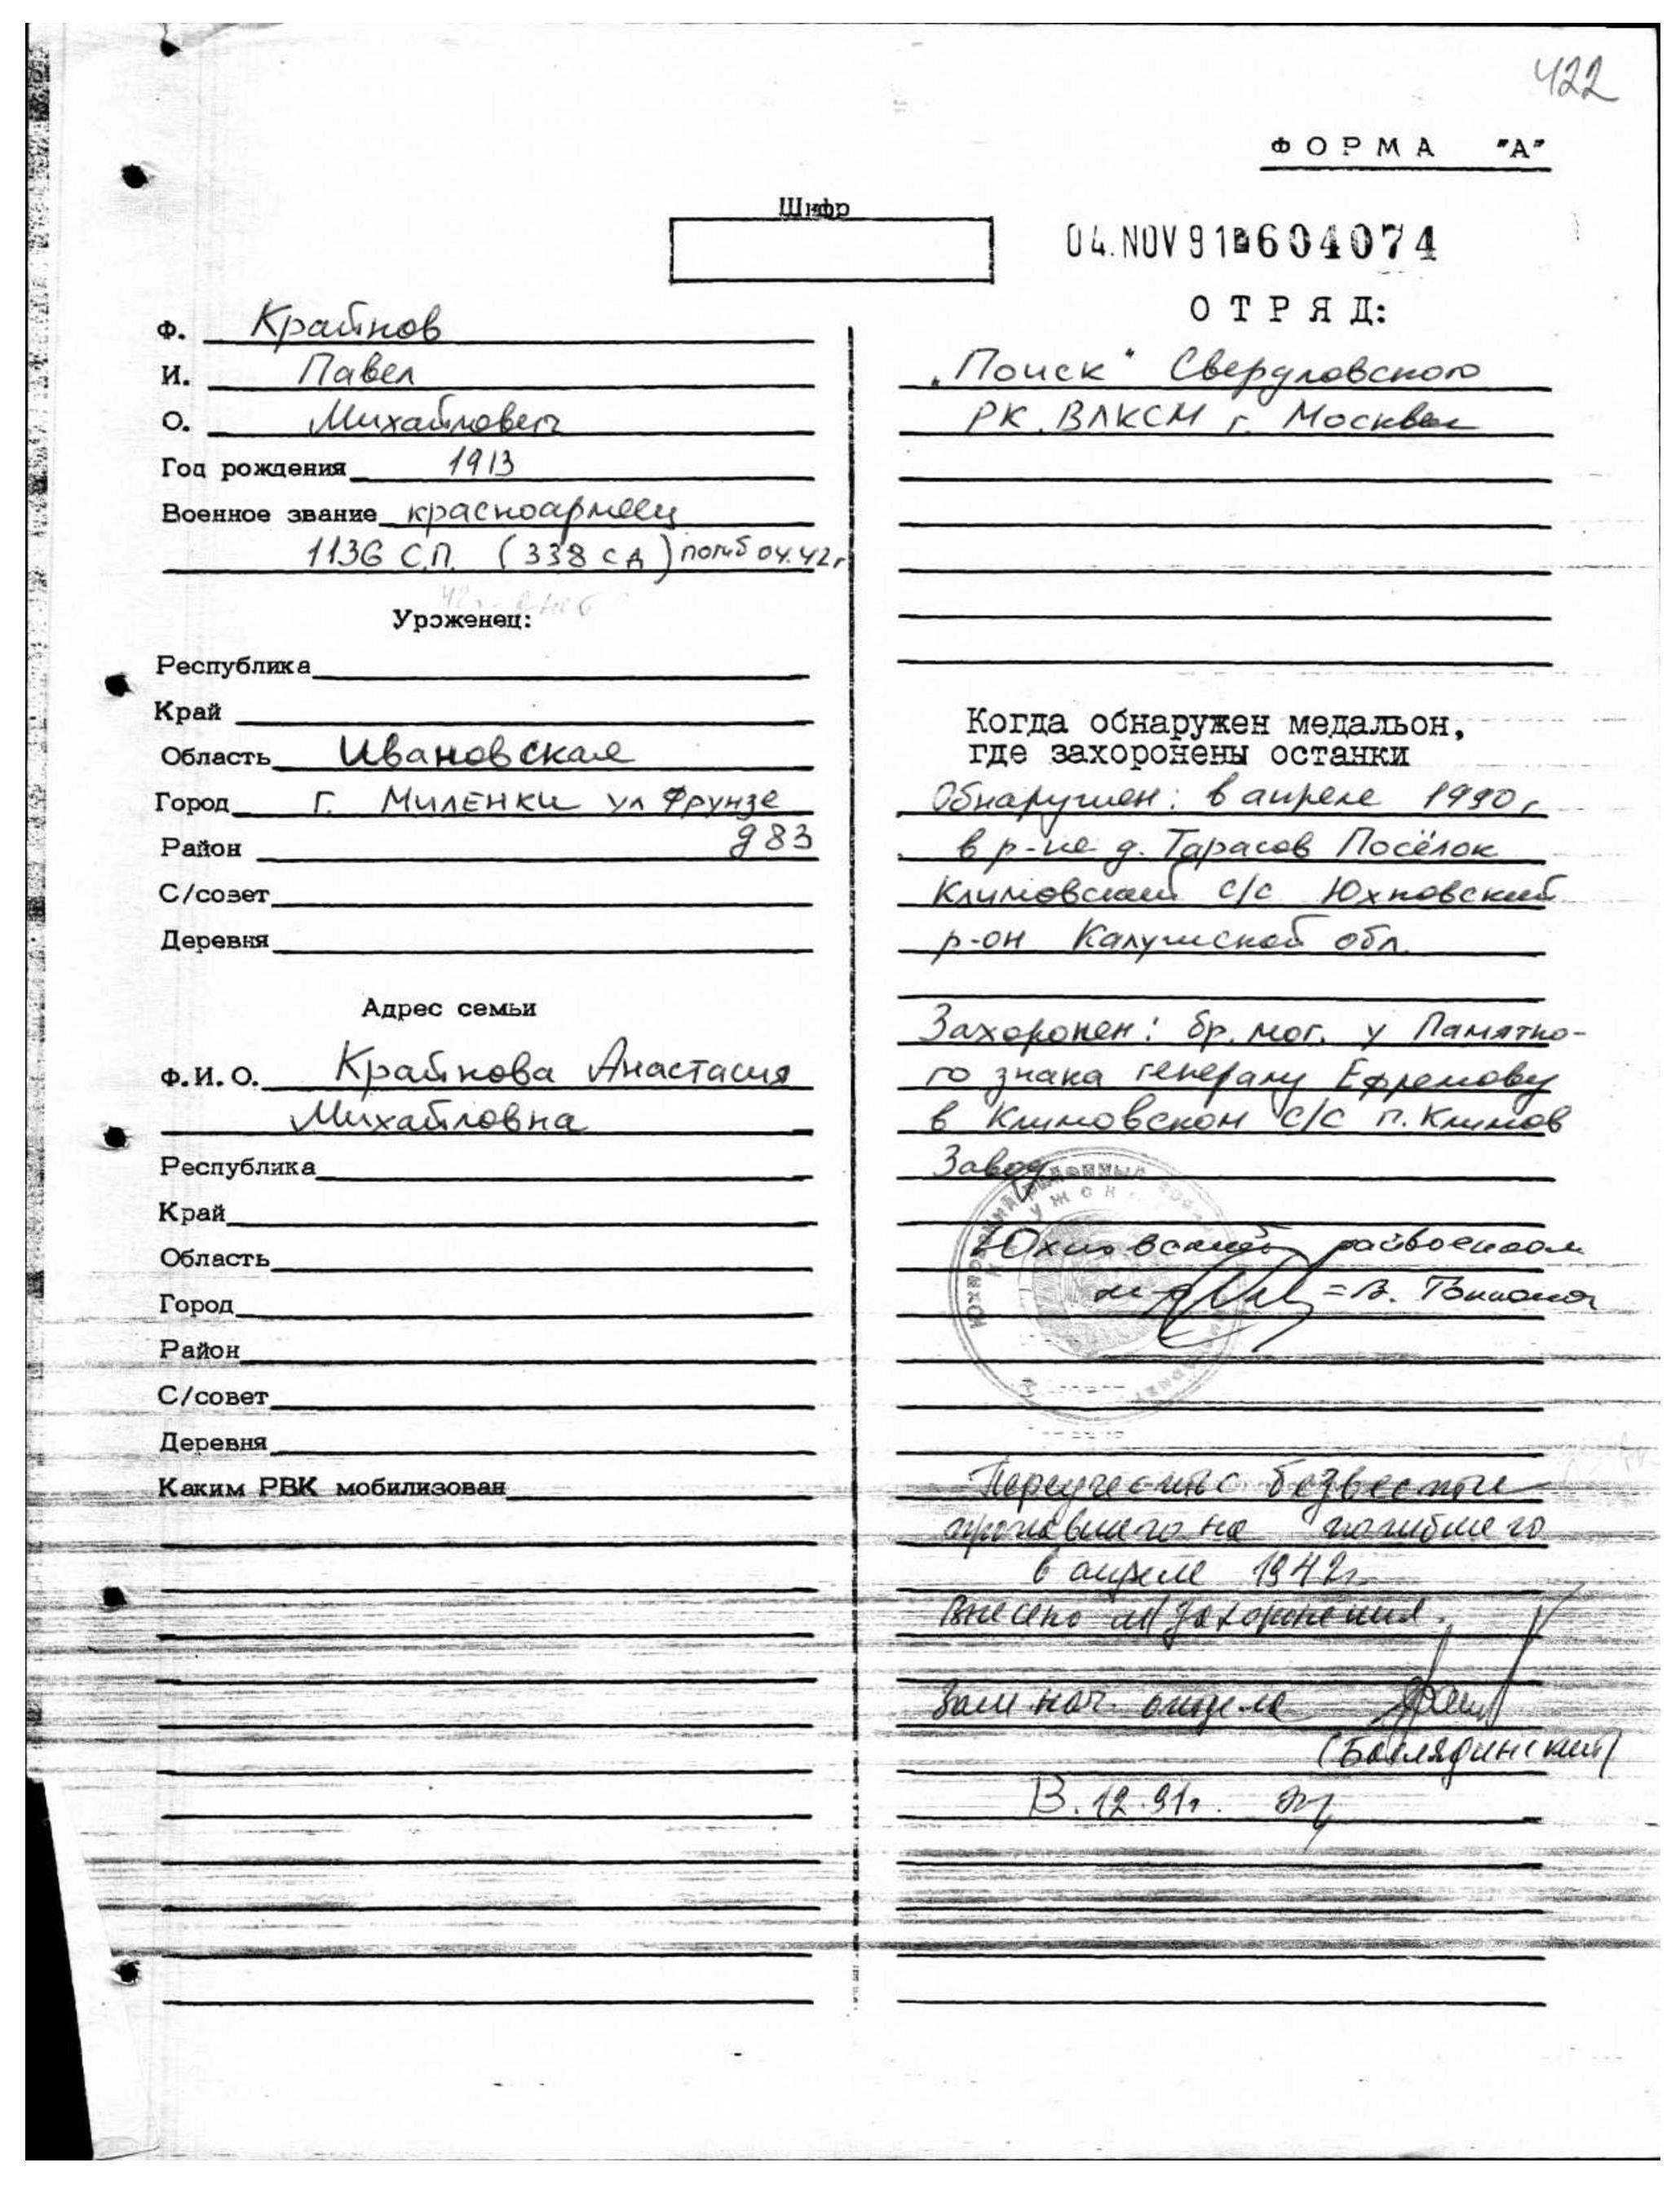 422
ФОРМА "А"
Шифр
04.NOV 91 604074
ОТРЯД:
Ф. Крайнов
И. Павел
О. Михайлович
Год рождения 1913
Военное звание красноармеец
1136 С.П. (338 сд) погиб 04.42г
Уроженец:
Республика
Край
Область Ивановская
Город г. Миленки ул Фрунзе
Район д83
С/совет
Деревня
Адрес семьи
Ф.И.О. Крайнова Анастасия
Михайловна
Республика
Край
Область
Город
Район
С/совет
Деревня
Каким РВК мобилизован
„Поиск" Свердловского
РК ВЛКСМ г. Москвы
Когда обнаружен медальон,
где захоронены останки
Обнаружен: в апреле 1990г
в р-не д. Тарасов Посёлок
Климовский с/с Юхновский
р-он Калужской обл.
Захоронен: бр. мог. у Памятно-
го знака генералу Ефремову
в Климовском с/с п. Климов
Завод
Юхновский райвоенком
Переучесть с безвестно
пропавшего на погибшего
в апреле 1942г
Внесено м/захоронения.
Зам нач. отдела
12.91г.